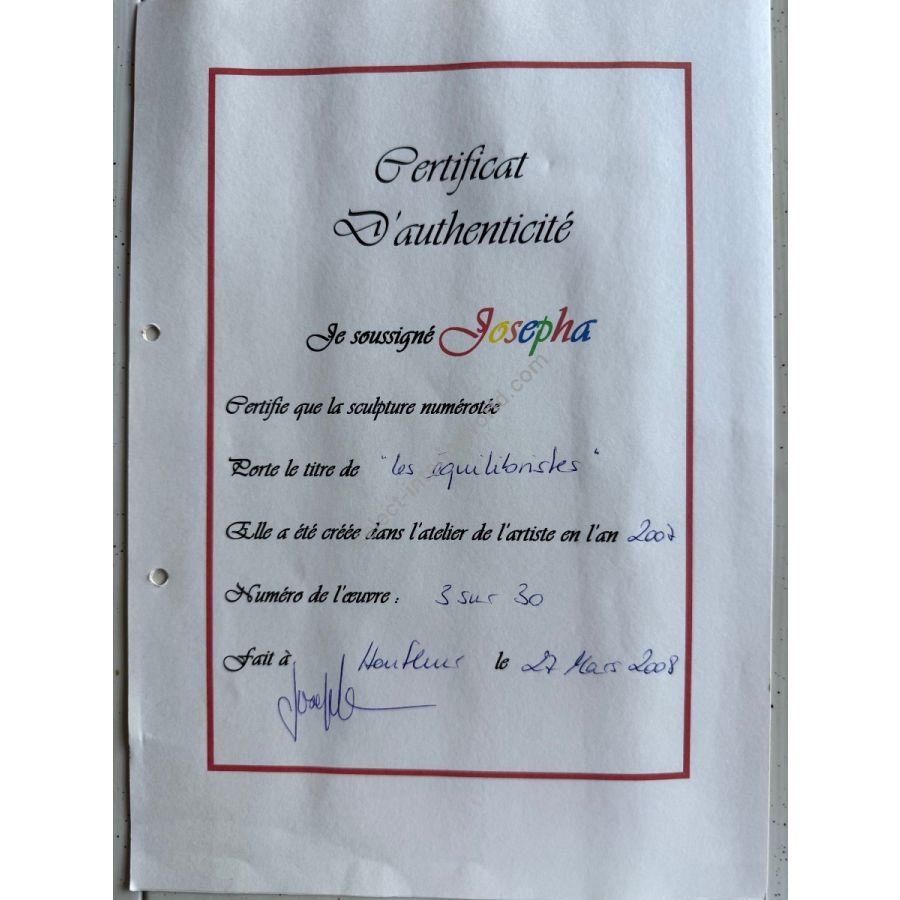 Certificat
D'authenticité
Je soussigné Josepha
Certifie que la sculpture numérotée
Porte le titre de "les équilibristes"
Elle a été créée dans l'atelier de l'artiste en l'an 2007
Numéro de l'œuvre : 3 sur 30
Fait à Honfleur le 27 Mars 2008
Joseph